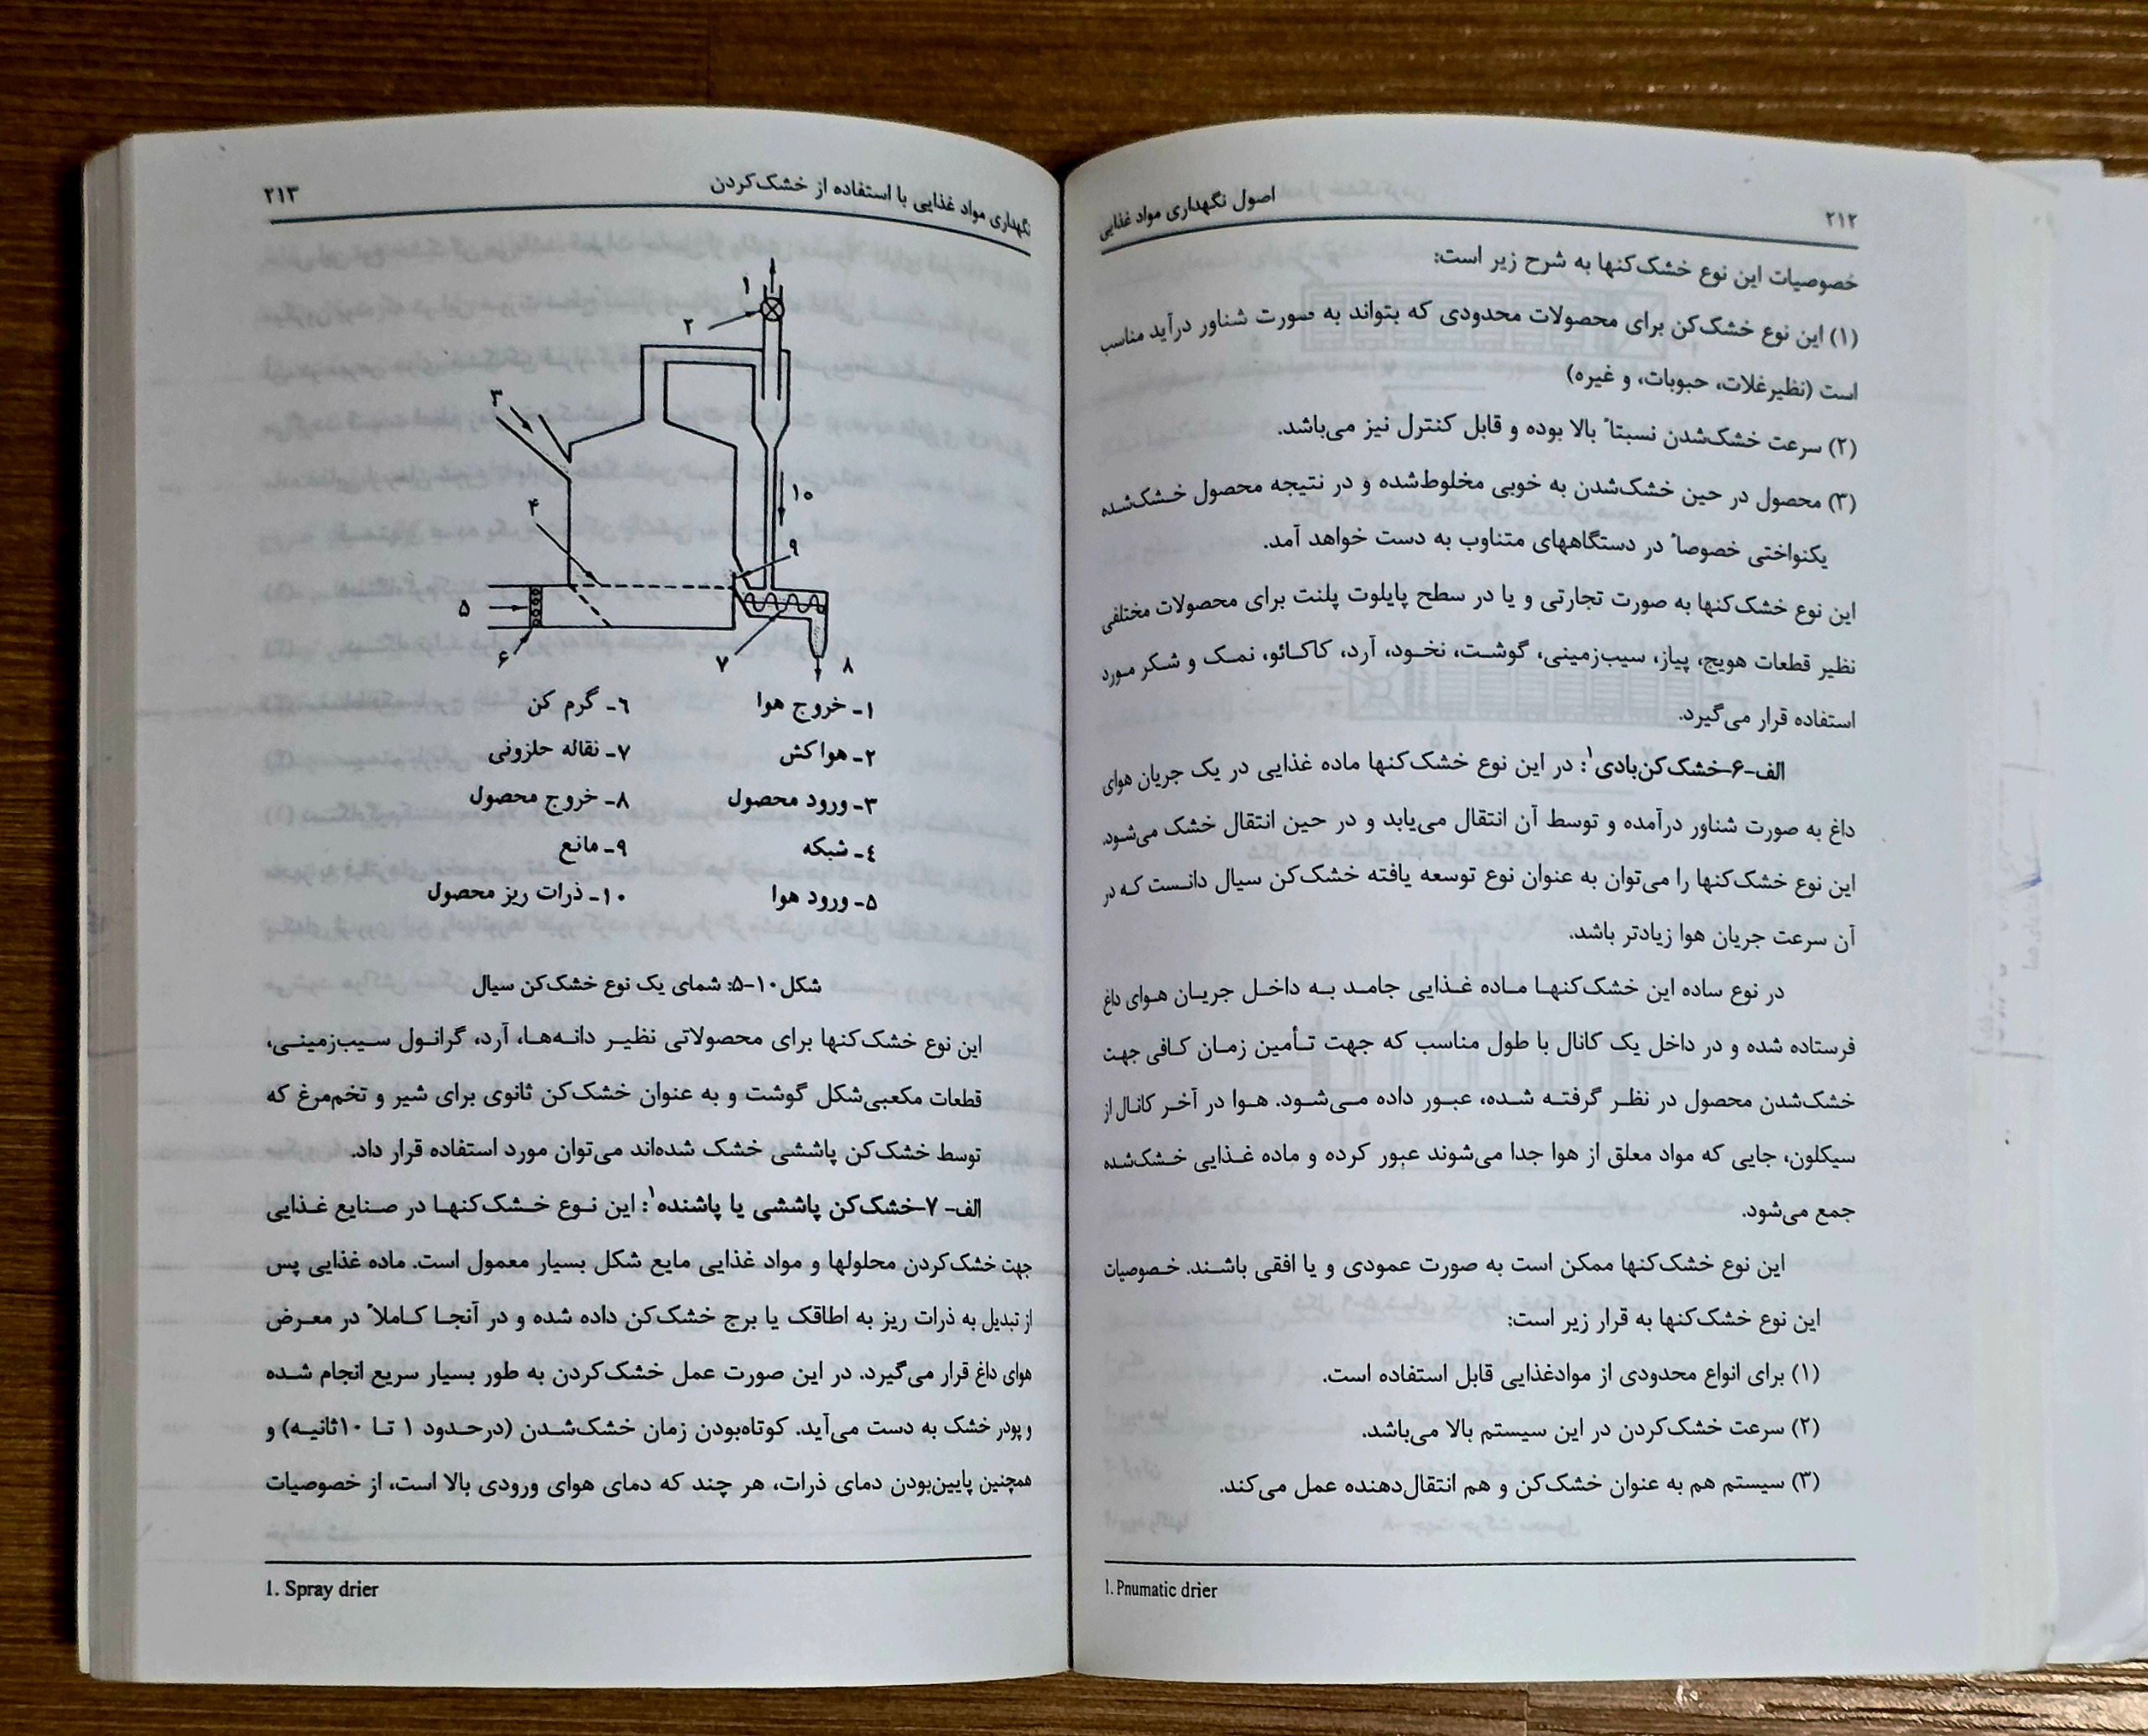 ۲۱۲
اصول نگهداری مواد غذایی
خصوصیات این نوع خشک‌کنها به شرح زیر است:
(۱) این نوع خشک‌کن برای محصولات محدودی که بتواند به صورت شناور درآید مناسب
است (نظیرغلات، حبوبات، و غیره)
(۲) سرعت خشک‌شدن نسبتاً بالا بوده و قابل کنترل نیز می‌باشد.
(۳) محصول در حین خشک‌شدن به خوبی مخلوط‌شده و در نتیجه محصول خشک‌شده
یکنواختی خصوصاً در دستگاههای متناوب به دست خواهد آمد.
این نوع خشک‌کنها به صورت تجارتی و یا در سطح پایلوت پلنت برای محصولات مختلفی
نظیر قطعات هویج، پیاز، سیب‌زمینی، گوشت، نخود، آرد، کاکائو، نمک و شکر مورد
استفاده قرار می‌گیرد.
الف-۶-خشک‌کن‌بادی۱: در این نوع خشک‌کنها ماده غذایی در یک جریان هوای
داغ به صورت شناور درآمده و توسط آن انتقال می‌یابد و در حین انتقال خشک می‌شود.
این نوع خشک‌کنها را می‌توان به عنوان نوع توسعه یافته خشک‌کن سیال دانست که در
آن سرعت جریان هوا زیادتر باشد.
در نوع ساده این خشک‌کنها ماده غذایی جامد به داخل جریان هوای داغ
فرستاده شده و در داخل یک کانال با طول مناسب که جهت تأمین زمان کافی جهت
خشک‌شدن محصول در نظر گرفته شده، عبور داده می‌شود. هوا در آخر کانال از
سیکلون، جایی که مواد معلق از هوا جدا می‌شوند عبور کرده و ماده غذایی خشک‌شده
جمع می‌شود.
این نوع خشک‌کنها ممکن است به صورت عمودی و یا افقی باشند. خصوصیات
این نوع خشک‌کنها به قرار زیر است:
(۱) برای انواع محدودی از موادغذایی قابل استفاده است.
(۲) سرعت خشک‌کردن در این سیستم بالا می‌باشد.
(۳) سیستم هم به عنوان خشک‌کن و هم انتقال‌دهنده عمل می‌کند.
1. Pnumatic drier
نگهداری مواد غذایی با استفاده از خشک‌کردن
۲۱۳
۱
۲
۳
۱۰
۴
۹
۵
۶
۷
۸
۱- خروج هوا
۶- گرم کن
۲- هواکش
۷- نقاله حلزونی
۳- ورود محصول
۸- خروج محصول
۴- شبکه
۹- مانع
۵- ورود هوا
۱۰- ذرات ریز محصول
شکل۱۰-۵: شمای یک نوع خشک‌کن سیال
این نوع خشک‌کنها برای محصولاتی نظیر دانه‌ها، آرد، گرانول سیب‌زمینی،
قطعات مکعبی‌شکل گوشت و به عنوان خشک‌کن ثانوی برای شیر و تخم‌مرغ که
توسط خشک‌کن پاششی خشک شده‌اند می‌توان مورد استفاده قرار داد.
الف- ۷-خشک‌کن پاششی یا پاشنده۱: این نوع خشک‌کنها در صنایع غذایی
جهت خشک‌کردن محلولها و مواد غذایی مایع شکل بسیار معمول است. ماده غذایی پس
از تبدیل به ذرات ریز به اطاقک یا برج خشک‌کن داده شده و در آنجا کاملاً در معرض
هوای داغ قرار می‌گیرد. در این صورت عمل خشک‌کردن به طور بسیار سریع انجام شده
و پودر خشک به دست می‌آید. کوتاه‌بودن زمان خشک‌شدن (درحدود ۱ تا ۱۰ثانیه) و
همچنین پایین‌بودن دمای ذرات، هر چند که دمای هوای ورودی بالا است، از خصوصیات
1. Spray drier